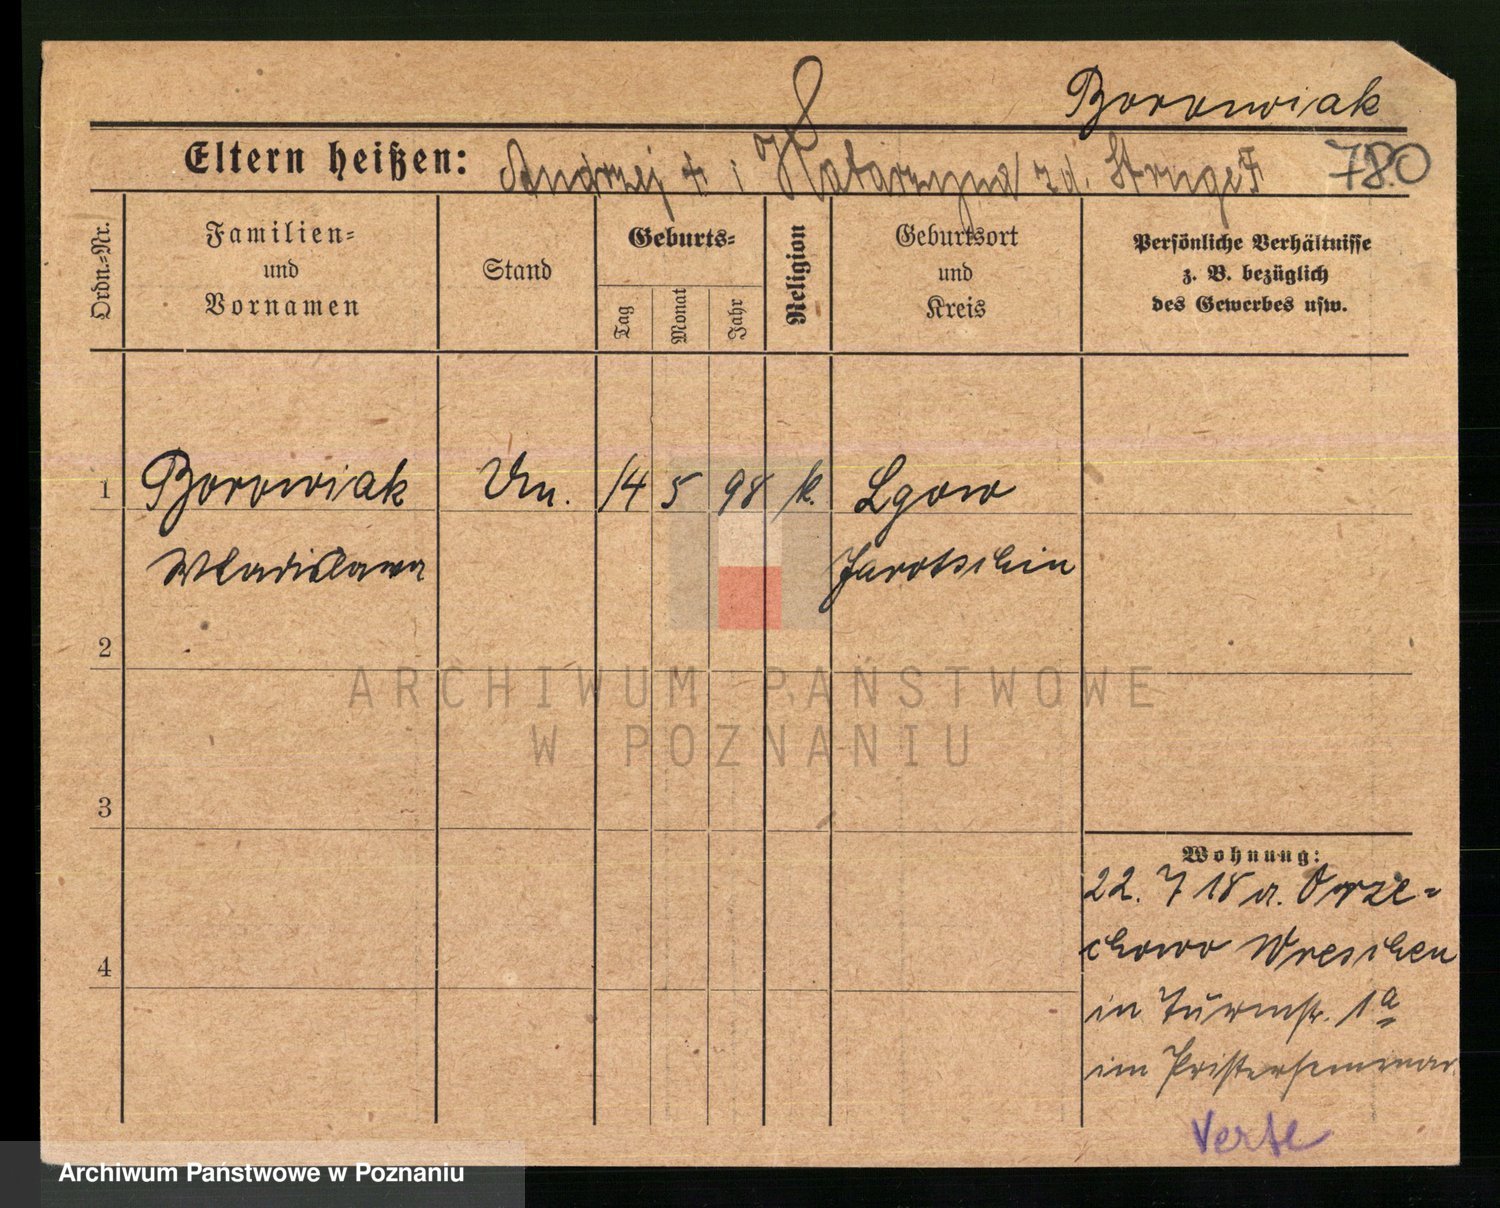 8
Borowiak
Eltern heißen: Andrzej + i Katarzyna z d. 780
Ordn.-Nr.
Familien-
und
Vornamen
Stand
Geburts-
Tag
Monat
Jahr
Religion
Geburtsort
und
Kreis
Persönliche Verhältnisse
z. B. bezüglich
des Gewerbes usw.
1 Borowiak 14 5 98 k. Lgow
Wladislawa Jarotschin
2
3
4
Wohnung:
22. 7 18 a. Orze-
chowo Wreschen
in Turmstr. 1a
im Pristerseminar
Verte
ARCHIWUM PAŃSTWOWE
W POZNANIU
Archiwum Państwowe w Poznaniu